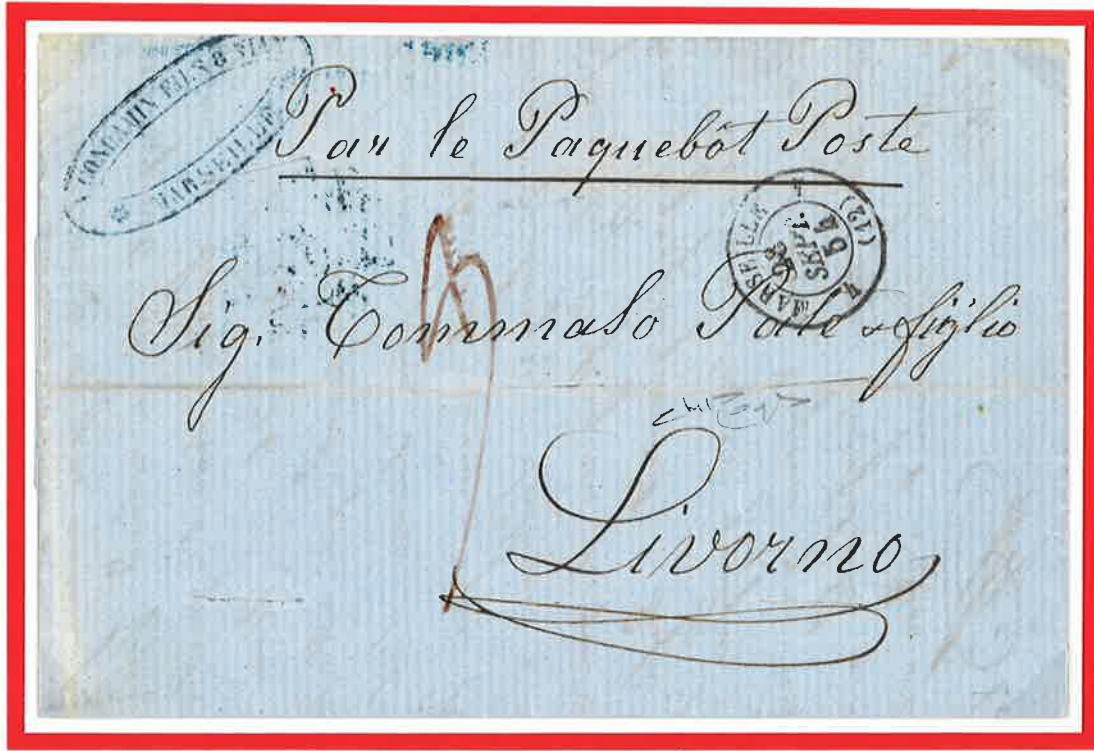 CONDAMIN FILS & VIAN
MARSEILLE
Par le Paquebôt Poste
MARSEILLE
4
SEPT
54
(12)
Sig. Tommaso Paté & figlio
Livorno